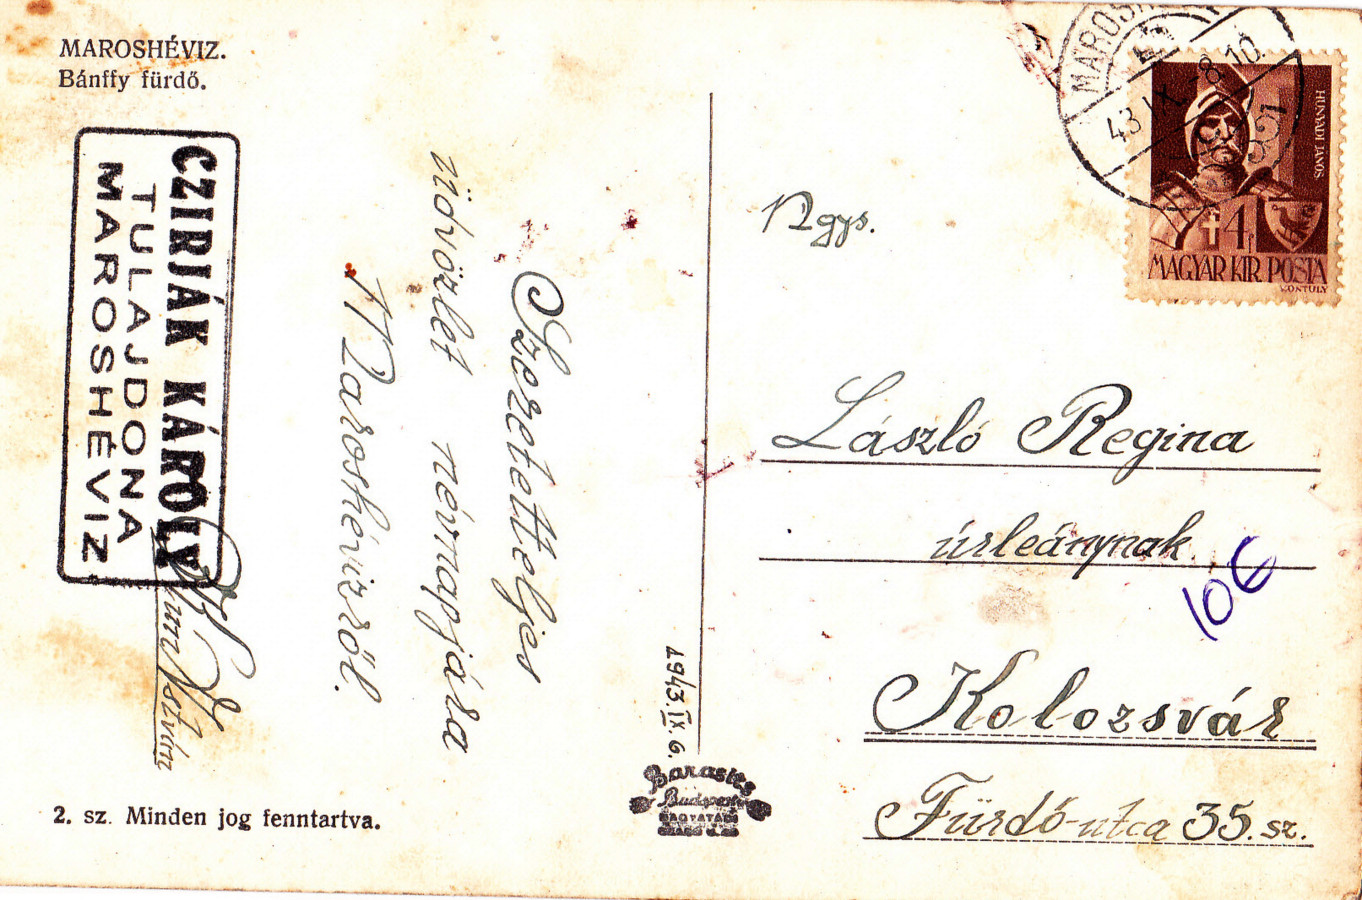 MAROSHÉVIZ.
Bánffy fürdő.
CZIRJÁK KÁROLY
TULAJDONA
MAROSHÉVIZ
Szeretetteljes
üdvözlet névnapjára
Maroshévizről.
István
1943.IX.6.
2. sz. Minden jog fenntartva.
Barasits
Budapest
43 IX. -8. 10.
HUNYADI JÁNOS
4f
MAGYAR KIR POSTA
KONTULY
Ngys.
László Regina
úrleánynak
10€
Kolozsvár
Fürdő-utca 35. sz.